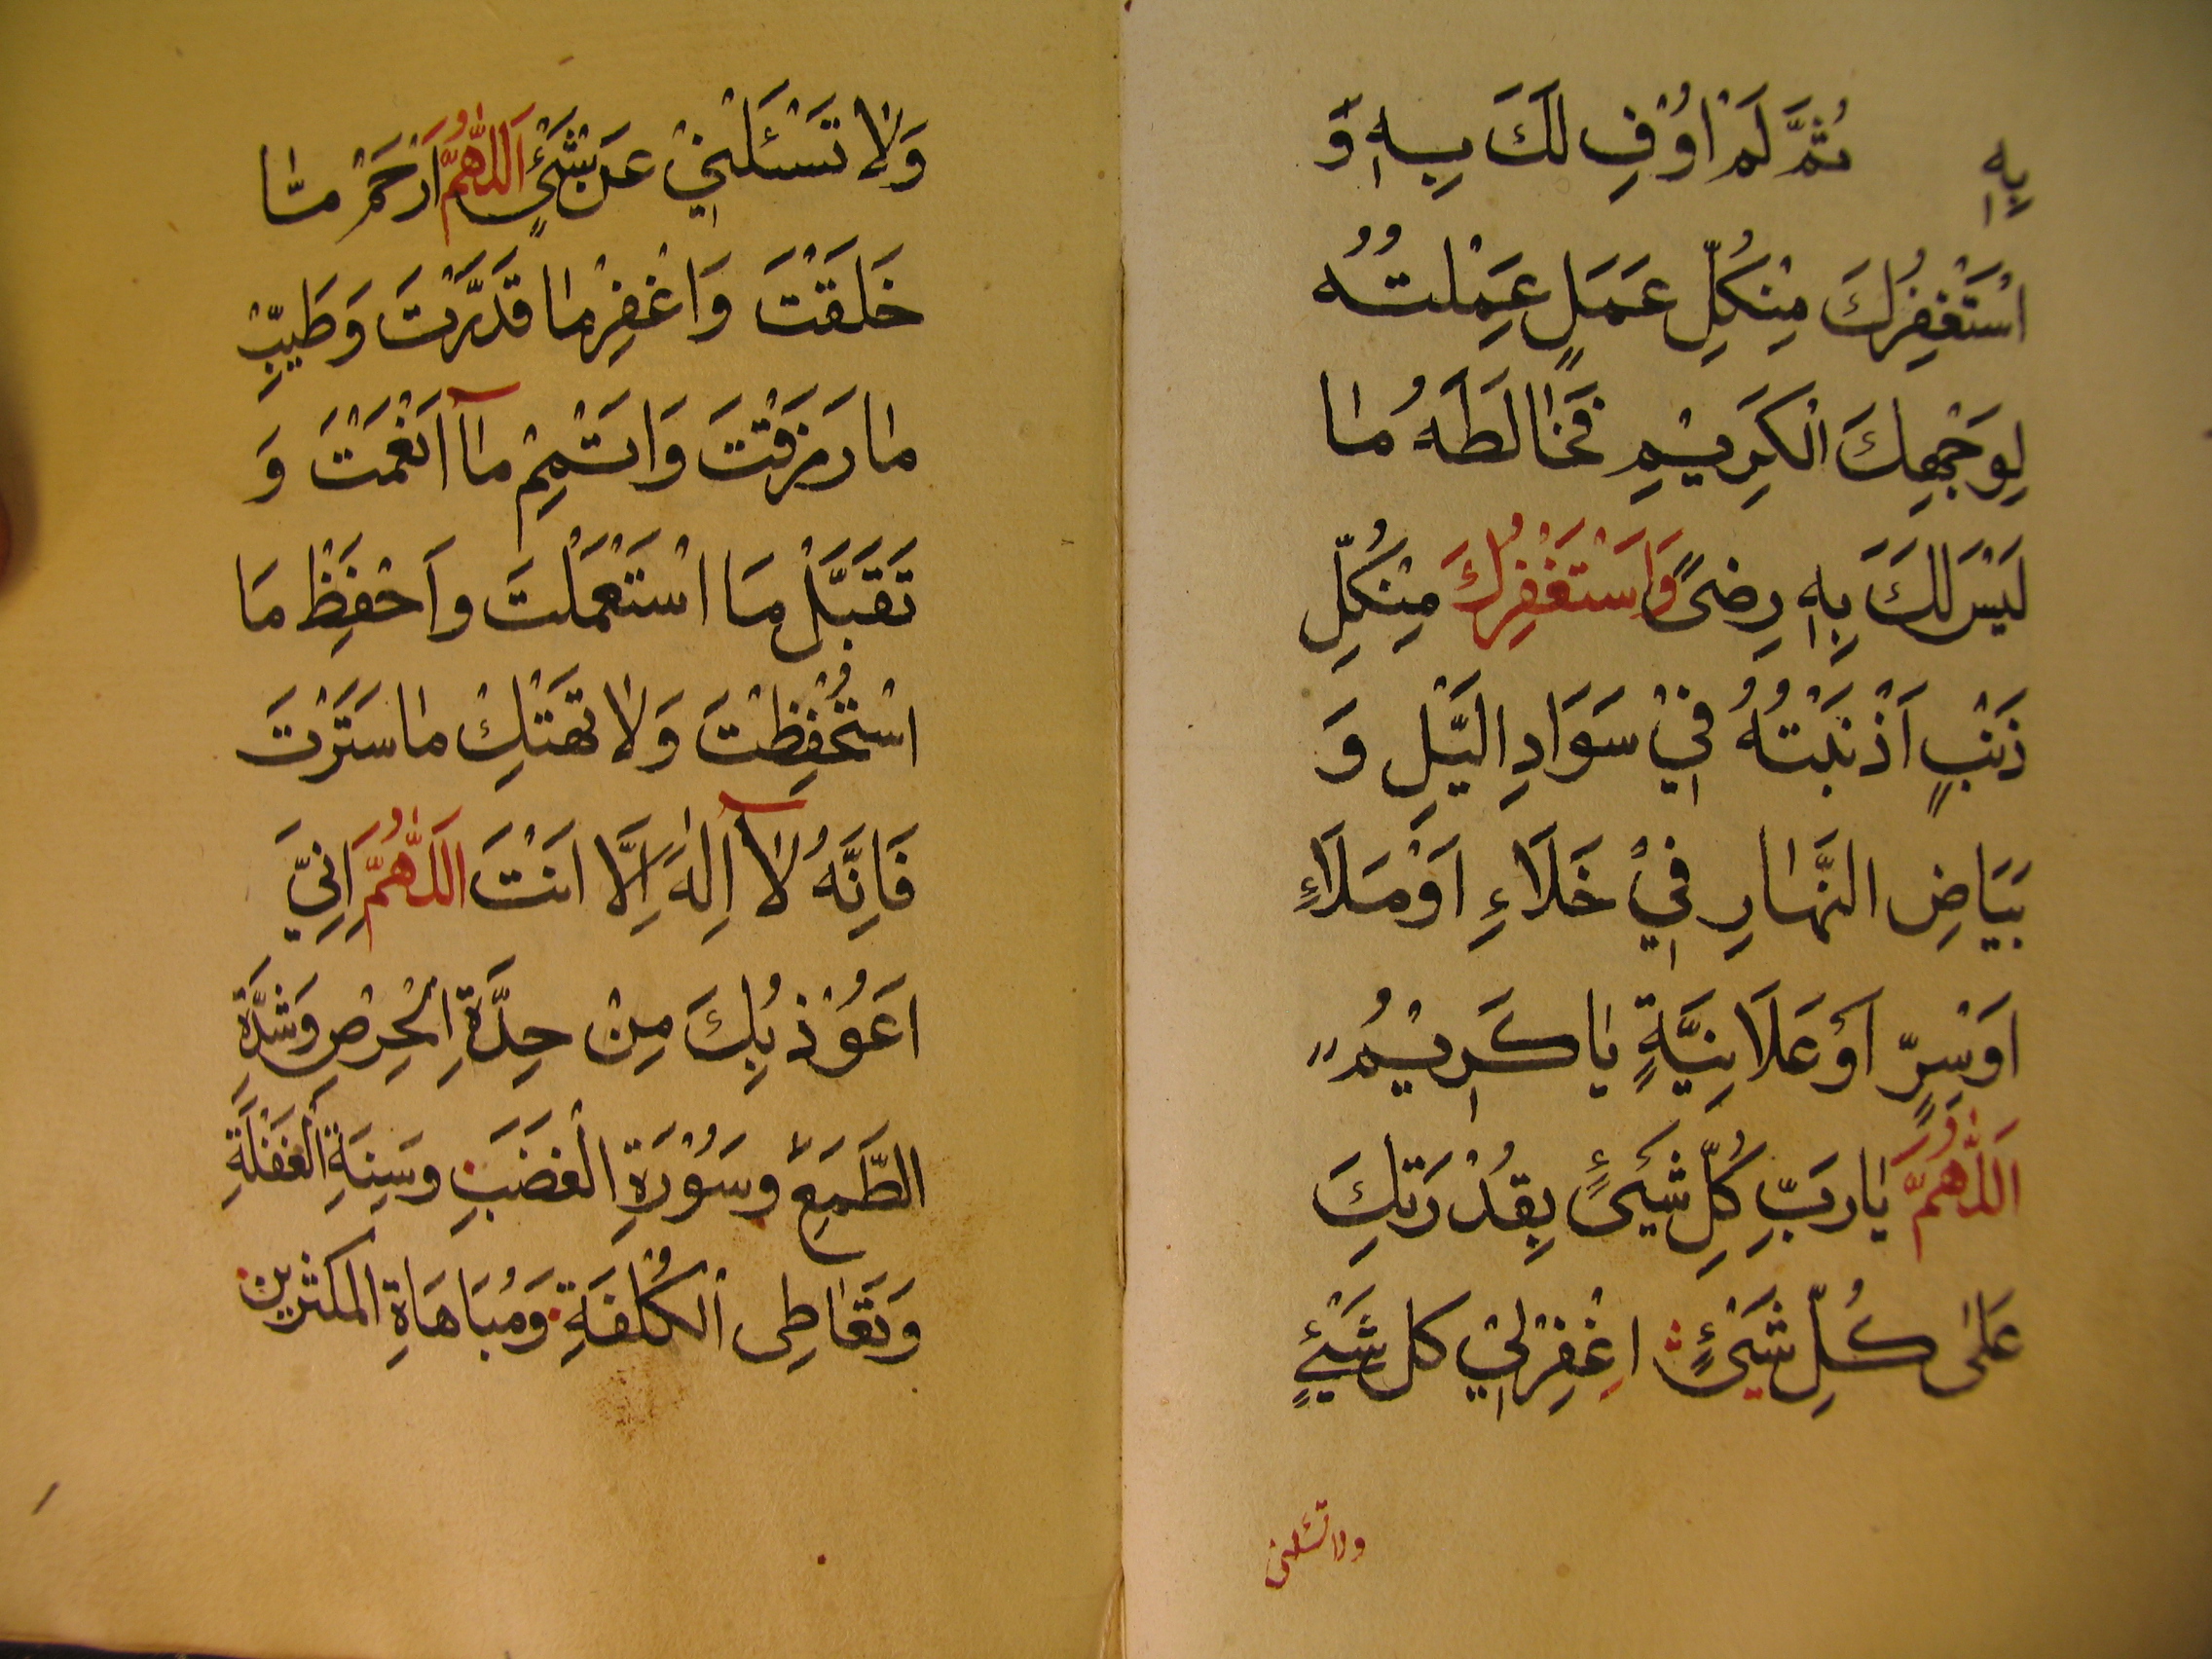 بِهٖ ثُمَّ لَمْ اُوْفِ لَكَ بِهٖ وَ
اَسْتَغْفِرُكَ مِنْكُلِّ عَمَلٍ عَمِلْتُهُ
لِوَجْهِكَ الْكَرِيْمِ فَخٰالَطَهُ مٰا
لَيْسَ لَكَ بِهٖ رِضىً وَاَسْتَغْفِرُكَ مِنْكُلِّ
ذَنْبٍ اَذْنَبْتُهُ فِيْ سَوَادِ الَّيْلِ وَ
بَيَاضِ النَّهٰارِ فِيْ خَلَاءِ اَوْ مَلَاءٍ
اَوْ سِرٍّ اَوْ عَلَانِيَّةٍ يٰا كَرِيْمُ
اَللّٰهُمَّ يٰا رَبَّ كُلِّ شَيْئٍ بِقُدْرَتِكَ
عَلٰى كُلِّ شَيْئٍ اِغْفِرْلِيْ كل شَيْئٍ
ولا تسئلنى
وَلٰا تَسْئَلْنِيْ عَنْ شَيْئٍ اَللّٰهُمَّ ارْحَمْ مٰا
خَلَقْتَ وَاغْفِرْ مٰا قَدَّرْتَ وَطَيِّبْ
مٰا رَزَقْتَ وَاَتْمِمْ مٰآ اَنْعَمْتَ وَ
تَقَبَّلْ مَا اسْتَعْمَلْتَ وَاَحْفِظْ مَا
اسْتُحْفِظْتَ وَلٰا تَهْتِكْ مٰا سَتَرْتَ
فَاِنَّهُ لٰآ اِلٰهَ اِلَّا اَنْتَ اَللّٰهُمَّ اِنِّيَ
اَعُوْذُ بِكَ مِنْ حِدَّةِ الْحِرْصِ وَشِدَّةِ
الطَّمَعِ وسَوْرَةِ الْغضَبِ وسِنَةِ الْغَفْلَةِ
وَتَعٰاطِى الْكُلْفَةِ وَمُبَاهَاةِ المكثرين